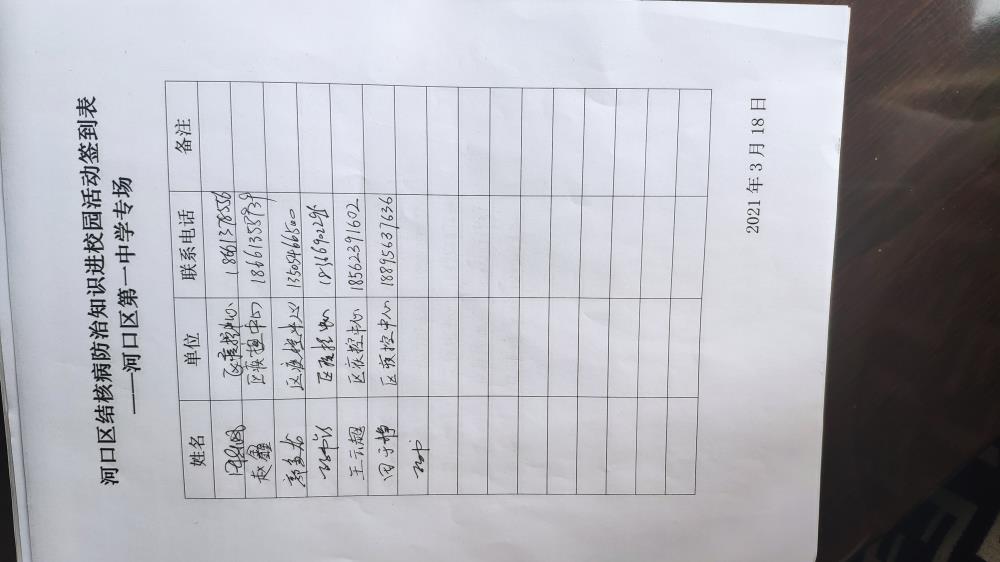 河口区结核病防治知识进校园活动签到表
——河口区第一中学专场
姓名 单位 联系电话 备注
区疾控中心 18661378556
赵鑫 区疾控中心 18661355939
区疾控中心 13505466500
区疾控中心
王云超 区疾控中心 18562391602
田于静 区疾控中心 18895637636
2021年3月18日